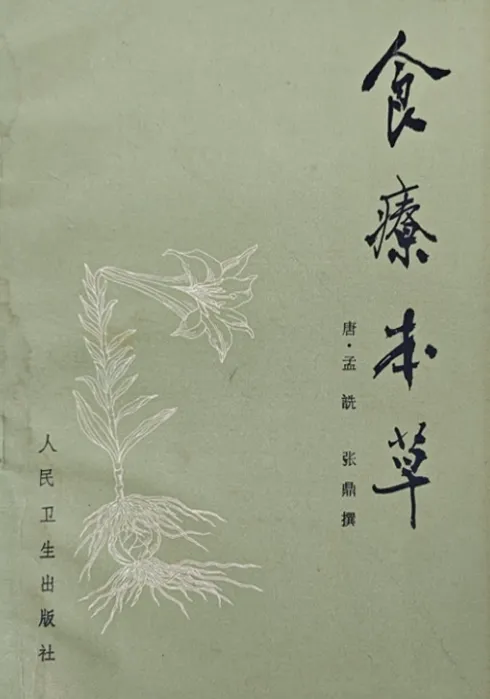 食療本草
唐·孟詵 张鼎撰
人民卫生出版社